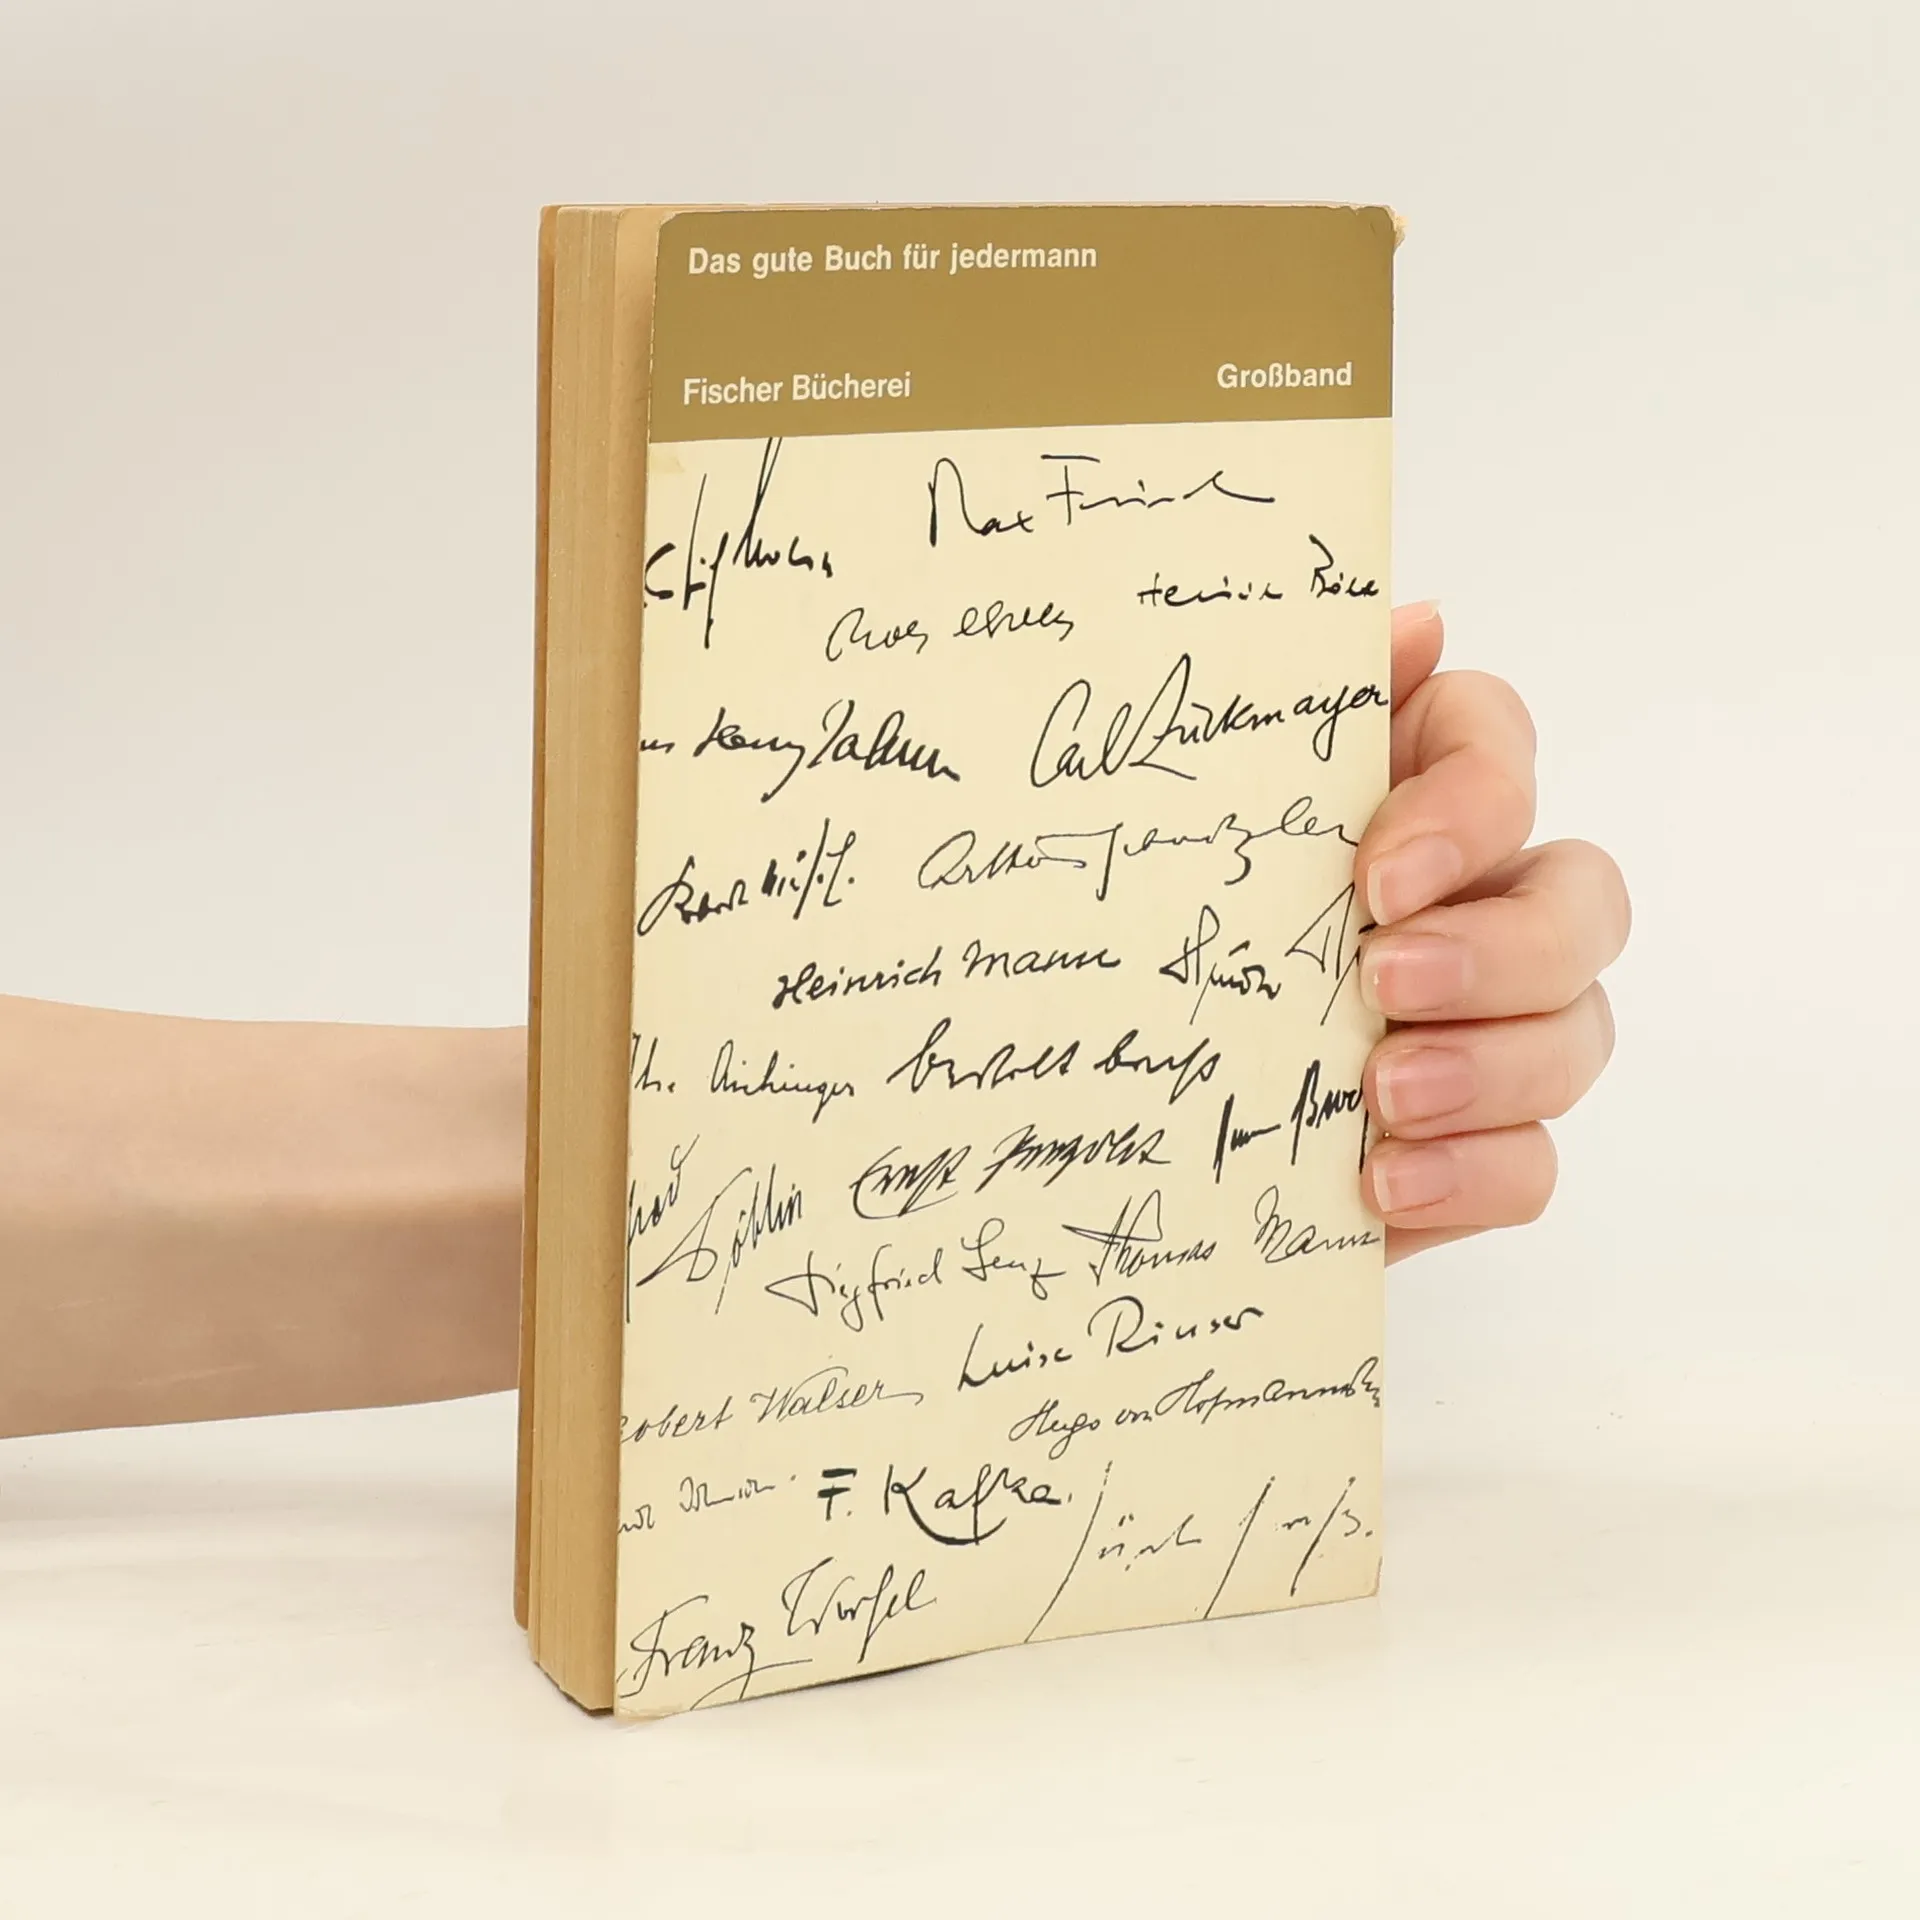 Das gute Buch für jedermann
Fischer Bücherei Großband
Max Frisch
Heinrich Böll
Henny Jahnn
Carl Zuckmayer
Arthur Schnitzler
Heinrich Mann
Ilse Aichinger bertolt brecht
Döblin Ernst Penzoldt
Siegfried Lenz Thomas Mann
Luise Rinser
Robert Walser
Hugo von Hofmannsthal
F. Kafka.
Franz Werfel